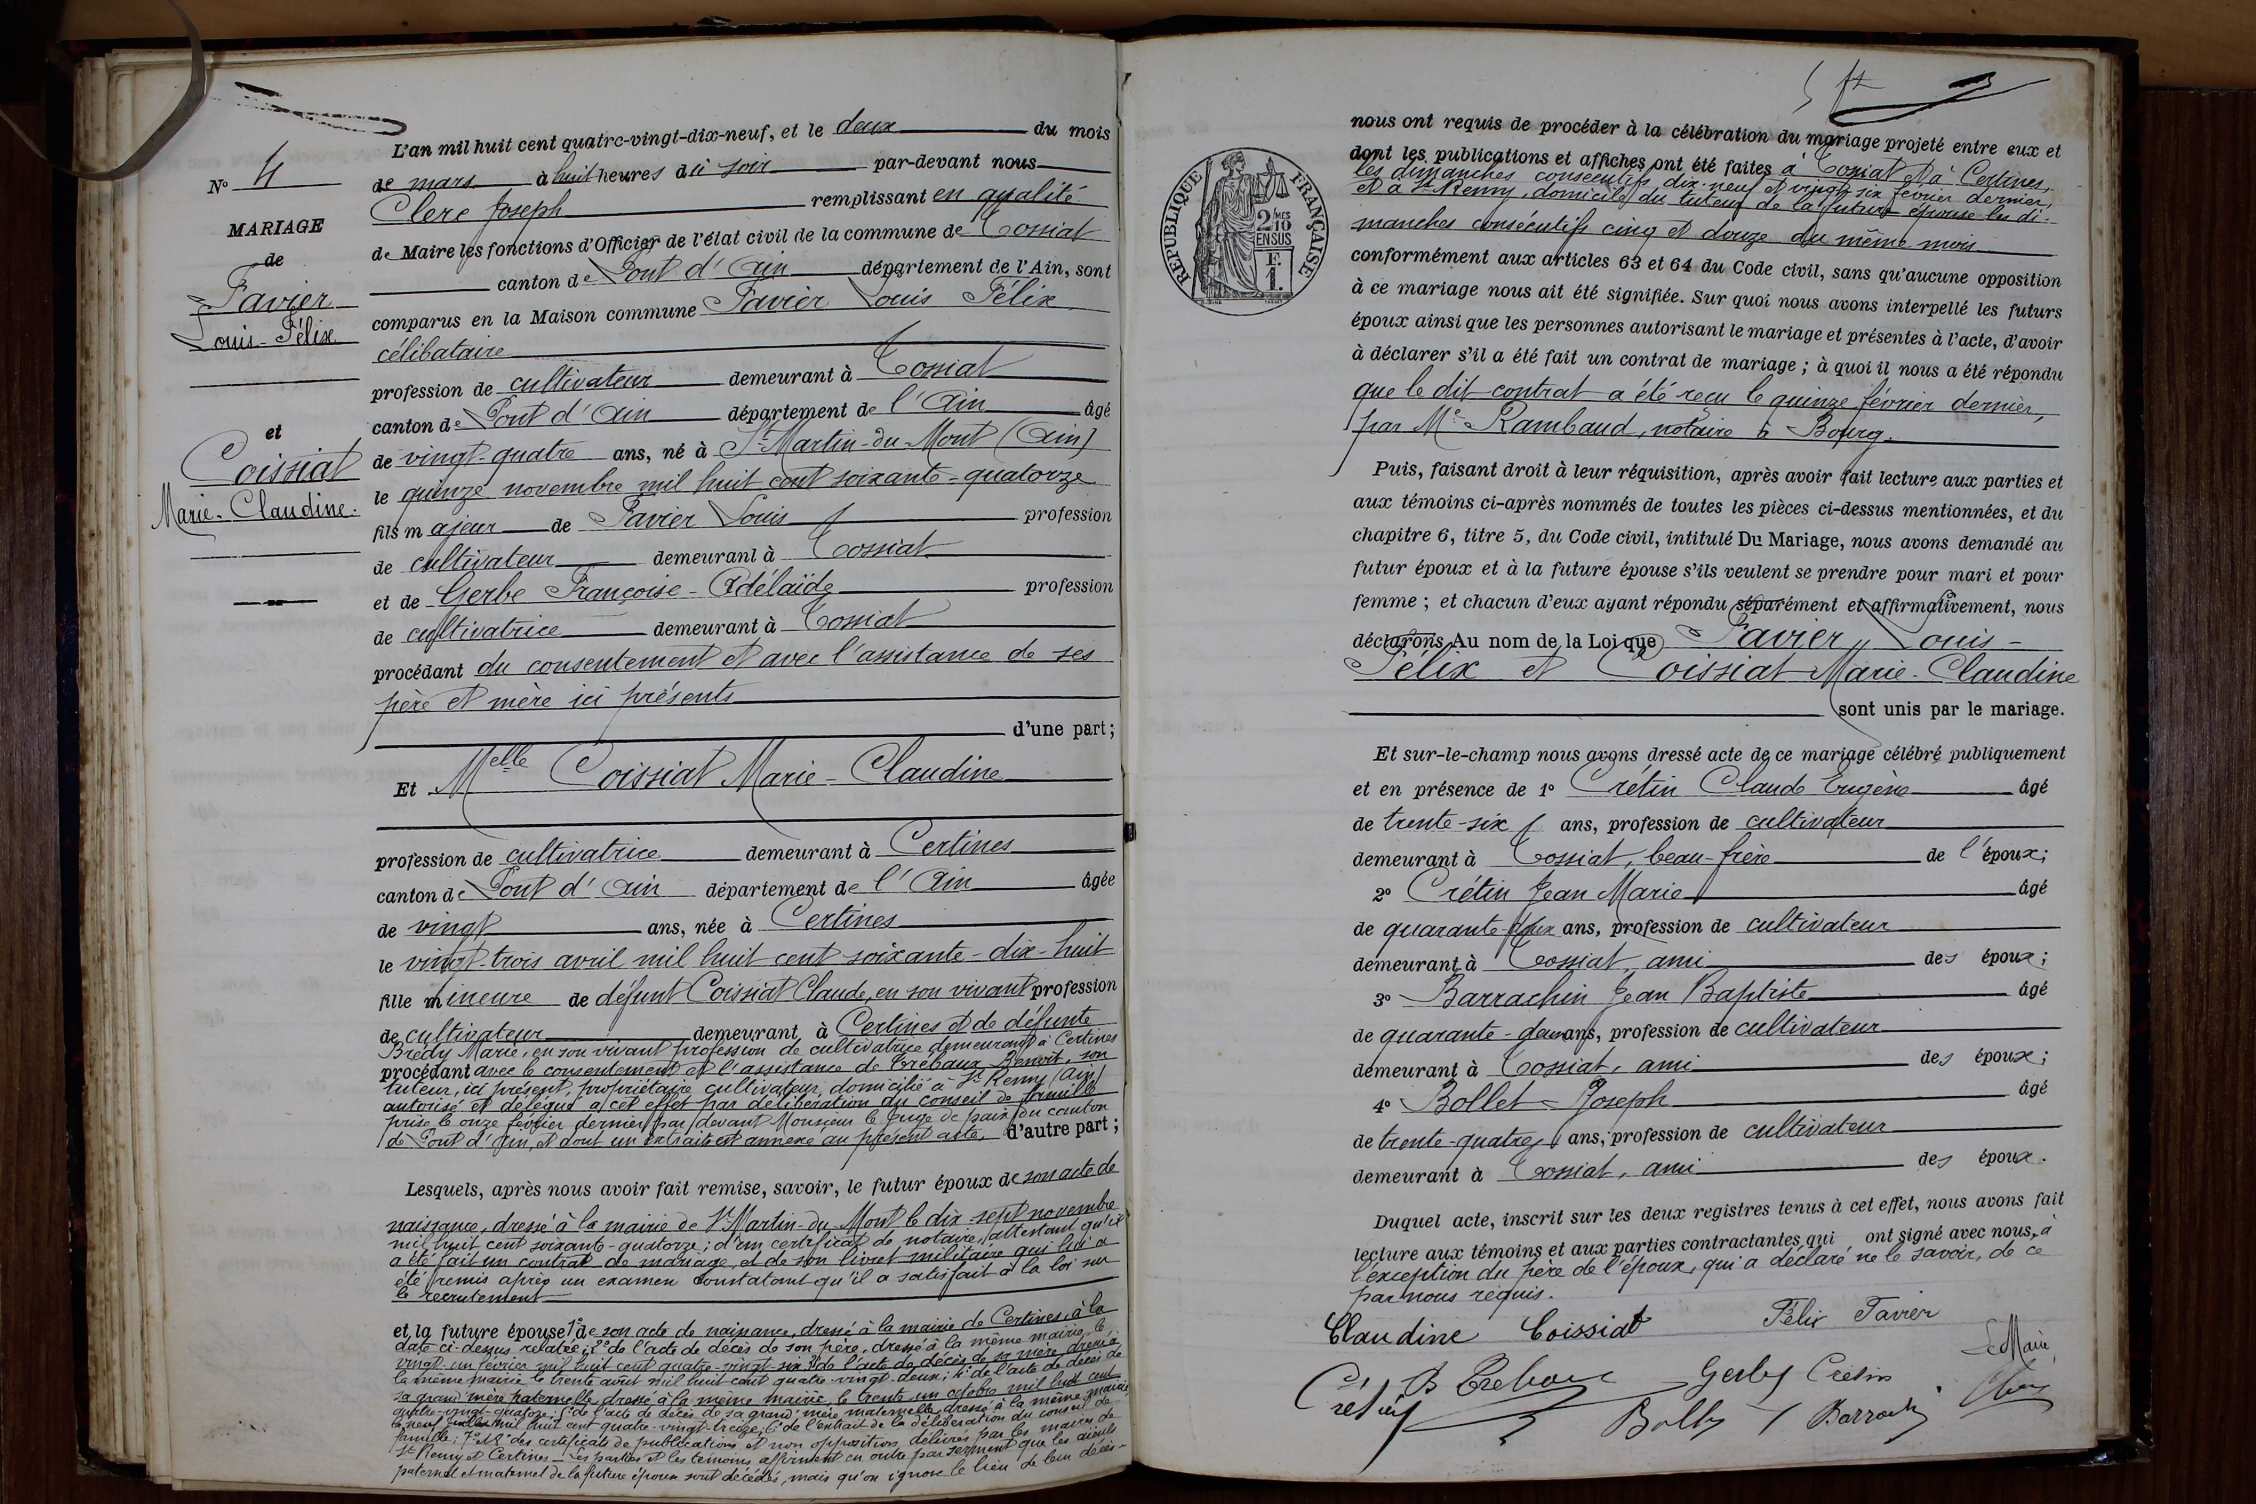 L'an mil huit cent quatre-vingt-dix-neuf, et le deux du mois
de mars à huit heures du soir par-devant nous
Clerc Joseph remplissant en qualité
de Maire les fonctions d'Officier de l'état civil de la commune de Tossiat
canton de Pont d'Ain département de l'Ain, sont
comparus en la Maison commune Favier Louis Félix
célibataire
profession de cultivateur demeurant à Tossiat
canton de Pont d'Ain département de l'Ain âgé
de vingt-quatre ans, né à St Martin-du-Mont (Ain)
le quinze novembre mil huit cent soixante-quatorze
fils majeur de Favier Louis profession
de cultivateur demeurant à Tossiat
et de Gerbe Françoise-Adélaïde profession
de cultivatrice demeurant à Tossiat
procédant du consentement et avec l'assistance de ses
père et mère ici présents
d'une part;
Et Melle Coissiat Marie-Claudine
profession de cultivatrice demeurant à Certines
canton de Pont d'Ain département de l'Ain âgée
de vingt ans, née à Certines
le vingt-trois avril mil huit cent soixante-dix-huit
fille mineure de défunt Coissiat Claude, en son vivant profession
de cultivateur demeurant à Certines et de défunte
Brédy Marie, en son vivant profession de cultivatrice demeurant à Certines
procédant avec le consentement et l'assistance de Trébaux Benoit, son
tuteur, ici présent, propriétaire cultivateur, domicilié à St Remy (Ain)
autorisé et délégué à cet effet par délibération du conseil de famille
prise le onze février dernier par devant Monsieur le Juge de paix du canton
de Pont d'Ain, et dont un extrait est annexé au présent acte, d'autre part;
Lesquels, après nous avoir fait remise, savoir, le futur époux de son acte de
naissance, dressé à la mairie de St Martin-du-Mont le dix-sept novembre
mil huit cent soixante-quatorze; d'un certificat de notaire, attestant qu'il
a été fait un contrat de mariage, et de son livret militaire qui lui a
été remis après un examen constatant qu'il a satisfait à la loi sur
le recrutement
et la future épouse 1° de son acte de naissance, dressé à la mairie de Certines, à la
date ci-dessus relatée; 2° de l'acte de décès de son père, dressé à la même mairie le
vingt-un février mil huit cent quatre-vingt-six; 3° de l'acte de décès de sa mère, dressé à
la même mairie le trente août mil huit cent quatre-vingt-deux; 4° de l'acte de décès de
sa grand'mère paternelle, dressé à la même mairie, le trente un octobre mil huit cent
quatre-vingt-quatorze; 5° de l'acte de décès de sa grand'mère maternelle, dressé à la même mairie
le neuf juillet mil huit cent quatre-vingt-treize; 6° de l'extrait de la délibération du conseil de
famille; 7° et 8° des certificats de publications et non opposition délivrés par les maires de
St Remy et Certines. Les parties et les témoins affirment en outre par serment que les aïeuls
paternel et maternel de la future épouse sont décédés, mais qu'on ignore le lieu de leur décès
N° 4
MARIAGE
de
Favier
Louis-Félix
et
Coissiat
Marie-Claudine.
RÉPUBLIQUE FRANÇAISE
2 10MES
EN SUS
F.
1.
nous ont requis de procéder à la célébration du mariage projeté entre eux et
dont les publications et affiches ont été faites à Tossiat et à Certines,
les dimanches consécutifs dix-neuf et vingt-six février dernier,
et à St Remy, domicile du tuteur de la future épouse les di-
manches consécutifs cinq et douze du même mois
conformément aux articles 63 et 64 du Code civil, sans qu'aucune opposition
à ce mariage nous ait été signifiée. Sur quoi nous avons interpellé les futurs
époux ainsi que les personnes autorisant le mariage et présentes à l'acte, d'avoir
à déclarer s'il a été fait un contrat de mariage; à quoi il nous a été répondu
que le dit contrat a été reçu le quinze février dernier,
par Me Rambaud, notaire à Bourg.
Puis, faisant droit à leur réquisition, après avoir fait lecture aux parties et
aux témoins ci-après nommés de toutes les pièces ci-dessus mentionnées, et du
chapitre 6, titre 5, du Code civil, intitulé Du Mariage, nous avons demandé au
futur époux et à la future épouse s'ils veulent se prendre pour mari et pour
femme; et chacun d'eux ayant répondu séparément et affirmativement, nous
déclarons Au nom de la Loi que Favier Louis-
Félix et Coissiat Marie-Claudine
sont unis par le mariage.
Et sur-le-champ nous avons dressé acte de ce mariage célébré publiquement
et en présence de 1° Crétin Claude Eugène âgé
de trente-six ans, profession de cultivateur
demeurant à Tossiat, beau-frère de l'époux;
2° Crétin Jean Marie âgé
de quarante-deux ans, profession de cultivateur
demeurant à Tossiat, ami des époux;
3° Barrachin Jean Baptiste âgé
de quarante-deux ans, profession de cultivateur
demeurant à Tossiat, ami des époux;
4° Bollet Joseph âgé
de trente-quatre ans, profession de cultivateur
demeurant à Tossiat, ami des époux.
Duquel acte, inscrit sur les deux registres tenus à cet effet, nous avons fait
lecture aux témoins et aux parties contractantes qui ont signé avec nous, à
l'exception du père de l'époux, qui a déclaré ne le savoir, de ce
par nous requis.
Claudine Coissiat Félix Favier
Le Maire,
Crétin B Trebaux Gerbe Crétin Clerc
Bollet Barrachin